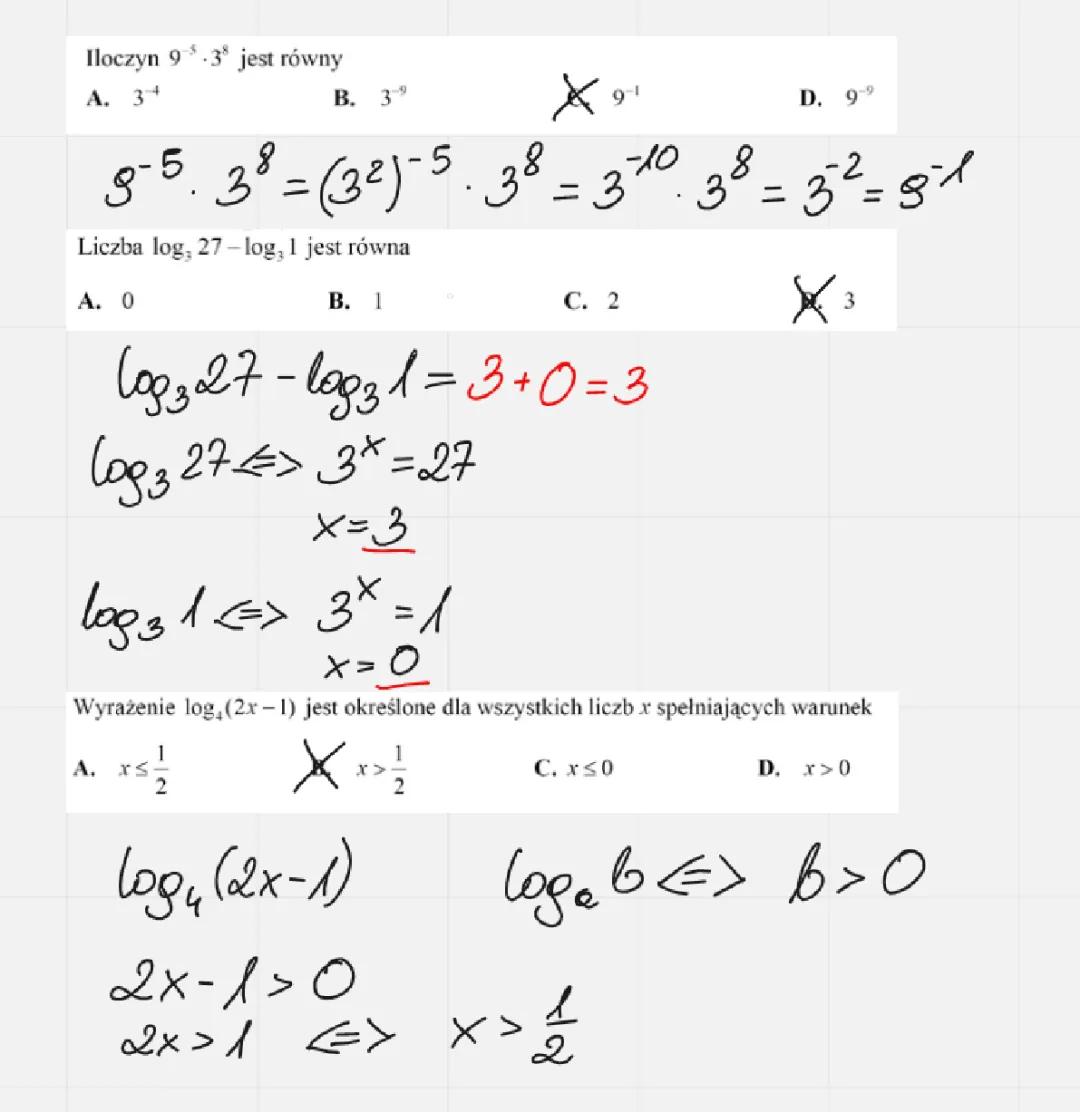 Iloczyn 9⁻⁵ · 3⁸ jest równy
A. 3⁻⁴ B. 3⁻⁹ 9⁻¹ D. 9⁻⁹
9⁻⁵ · 3⁸ = (3²)⁻⁵ · 3⁸ = 3⁻¹⁰ · 3⁸ = 3⁻² = 9⁻¹
Liczba log₃ 27 – log₃ 1 jest równa
A. 0 B. 1 C. 2 D. 3
log₃ 27 – log₃ 1 = 3 + 0 = 3
log₃ 27 <=> 3ˣ = 27
x = 3
log₃ 1 <=> 3ˣ = 1
x = 0
Wyrażenie log₄(2x – 1) jest określone dla wszystkich liczb x spełniających warunek
A. x ≤ 1/2 B. x > 1/2 C. x ≤ 0 D. x > 0
log₄ (2x-1) logₐ b <=> b > 0
2x - 1 > 0
2x > 1 <=> x > 1/2